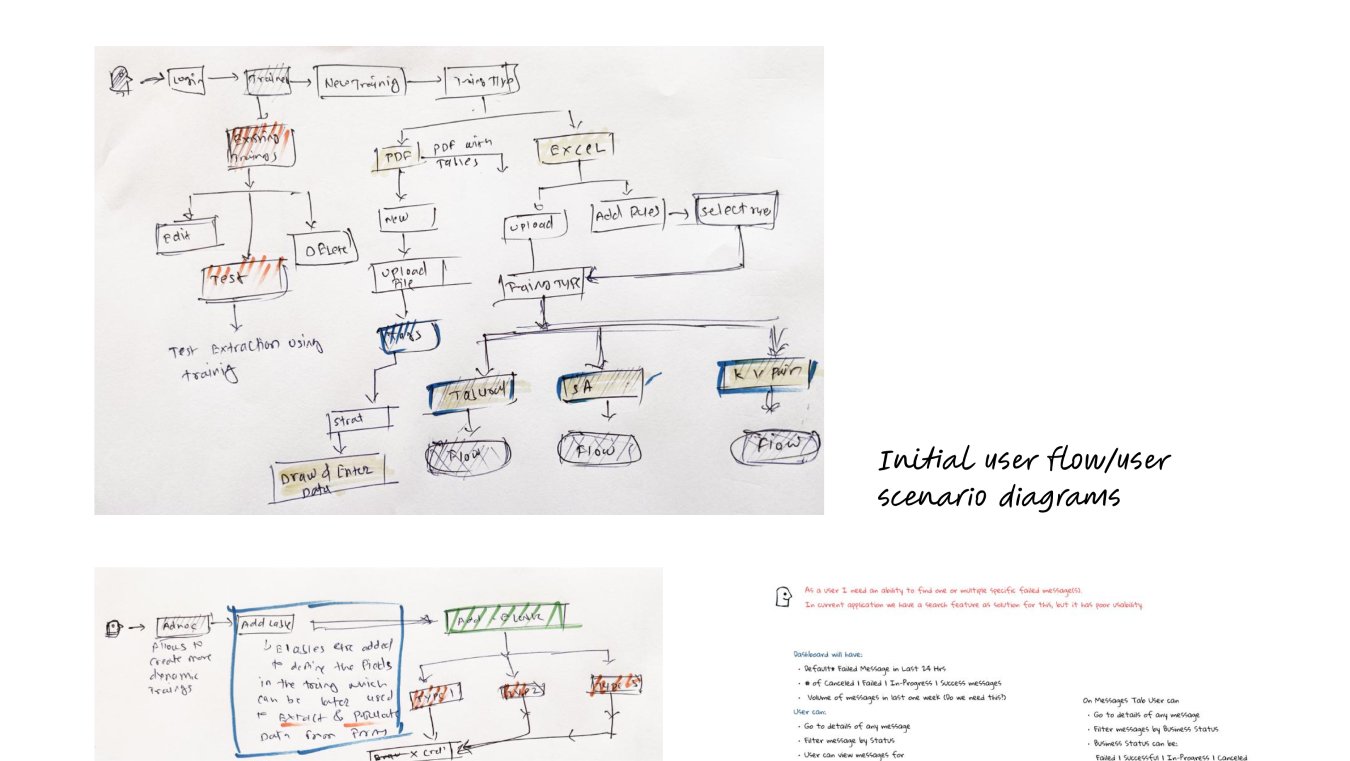 Login
New Trainig
PDF
PDF with
Tables
EXCEL
Existing
Edit
DELete
Test
New
upload
File
upload
Add Rules
select
Test Extraction using
trainig
strat
Draw & Enter
Data
SA
K V pair
Flow
Flow
Flow
Initial user flow/user
scenario diagrams
Adhoc
Allows to
create more
dynamic
Add
to define the fields
in the
which
can be later used
to Extract &
Data from
As a user I need an ability to find one or multiple specific failed message(s).
In current application we have a search feature as solution for this, but it has poor usability.
Dashboard will have:
• Default# Failed Message in Last 24 Hrs
• # of Canceled | Failed | In-Progress | Success messages
• Volume of messages in last one week (Do we need this?)
User can:
• Go to details of any message
• Filter message by Status
• User can view messages for
On Messages Tab User can
• Go to details of any message
• Filter messages by Business Status
• Business Status can be:
Failed | Successful | In-Progress | Canceled